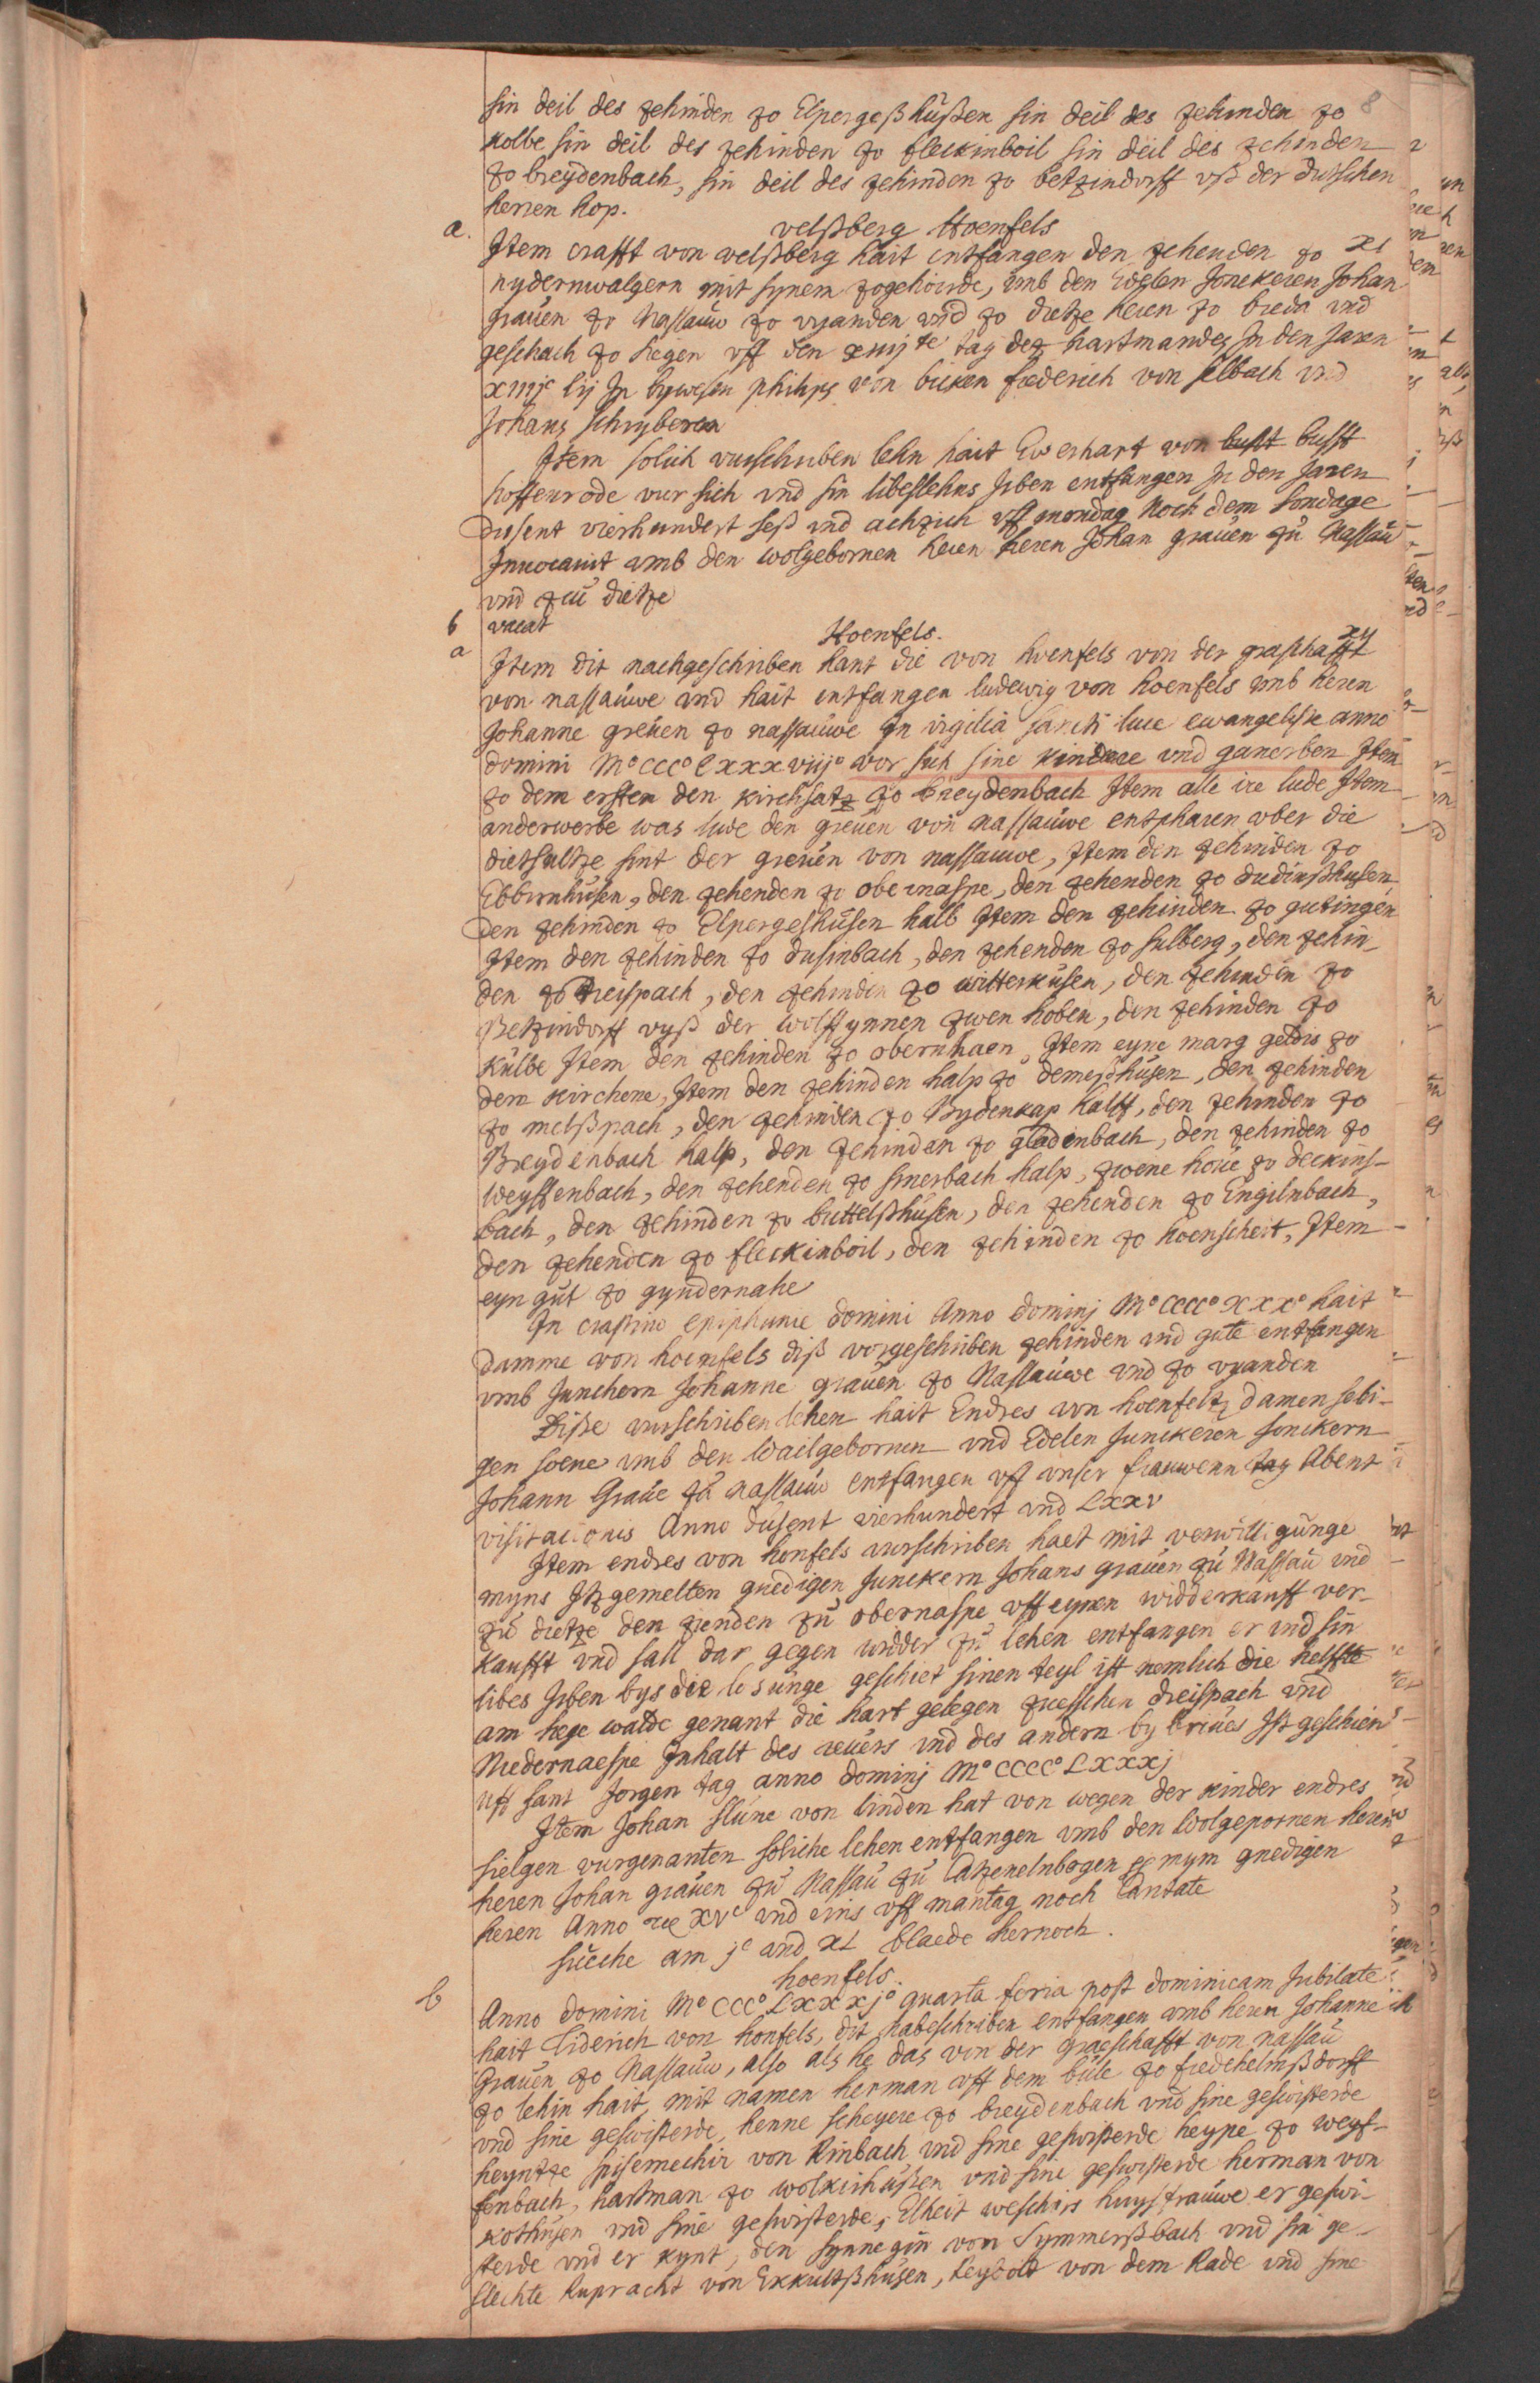 8
sin deil des zehinden zo Elpergeßhußen sin deil des zehinden zo
kolbe sin deil des zehinden zo fleckinboil sin deil des zehinden
zo breydenbach, sin deil des zehinden zo betzindorff vß der dutschen
herren hop.
velßberg Hoenfels
a. Item crafft von velßberg hait entfangen den zehenden zo xi
nydernwalgern mit synem zogehorde, vmb den Edelen Jonckeren Johan
grauen zo Nassauw zo vyanden vnd zo dietze heren zo breda vnd
geschach zo siegen vff den xiiijte tag dez hartmandez In den Jaren
xiiijc lij In bywesen philips von bicken frederich von selbach vnd
Johans schryberen
Item solich vurschriben lehn hait Ewerhart von bufft
hoffenrode vur sich vnd sin libeslehns Erben entfangen In den Jaren
dusent vierhundert seß vnd achzich vff mondag noch dem sondage
Inuocauit vmb den wolgebornen heren heren Johan grauen zu Nassau
vnd zcu dietze
b vacat
Hoenfels.
a Item dit nachgeschriben hant die von hoenfels von der graschafft xij
von nassauwe vnd hait entfangen ludewig von hoenfels vmb heren
Johanne greuen zo nassauwe In vigilia sancti luce ewangeliste anno
domini M° ccc° lxxxviij° vor sich sine kindere vnd ganerben Item
zo dem ersten den kirchsatz zo breydenbach Item alle ire lude Item
anderwerbe was lude den greuen von nassauwe entpharen vber die
dietsultze sint der greuen von nassauwe, Item den zehinden zo
Ebbirnhusen, den zehenden zo obernaspe, den zehenden zo dudinßhusen
den zehinden zo Elpergeshusen halb Item den zehinden zo gutingen
Item den zehinden zo dusinbach, den zehenden zo sulberg, den zehin-
den zo treispach, den zehinden zo witterhusen, den zehinden zo
Betzindorff vyß der wolffynnen zwen hoben, den zehinden zo
kulbe Item den zehinden zo obernhaen, Item eyne marg geldis zo
dem kirchene, Item den zehinden halp zo demeßhusen, den zehinden
zo melßpach, den zehinden zo Bydenkap halff, den zehinden zo
Breydenbach halp, den zehinden zo gladenbach, den zehinden zo
weyffenbach, den zehenden zo smerbach halp, zwene houe zo deckins-
bach, den zehinden zo buttelßhusen, den zehenden zo Engilnbach,
den zehenden zo fleckinboil, den zehinden zo hoenscheit, Item
eyn gut zo gyndernahe
In crastino epiphanie domini Anno dominj M° cccc° xxx° hait
damme von hoenfels diß vorgeschriben zehinden vnd gute entfangen
vmb Junchern Johanne grauen zo Nassauwe vnd zo vyanden
Diße vurschriben lehen hait Endres von hoenfeltz damen seli-
gen soene vmb den Wailgebornen vnd Edelen Junckeren Jonckern
Johann Graue zu nassauw entfangen vff vnser frauwenn tag Abent
visitacionis Anno dusent vierhundert vnd Lxxv
Item endres von honfels vurschriben haet mit verwilligunge
myns Itzgemelten gnedigen Junckern Johans grauen zu Nassau vnd
zu dietze den zienden zu obernaspe vff eynen widderkauff ver-
kaufft vnd sall dar gegen widder zu lehen entfangen er vnd sin
libes Erben bys die losunge geschiet sinen teyl ist nemlich die helffte
am hege walde genant die hart gelegen zwesschen dreispach vnd
Niedernaespe Inhalt des reuers vnd des andern by brieues Ist geschien
vff sant Jorgen tag anno dominj M° CCCC° Lxxxj
Item Johan slune von linden hat von wegen der kinder endres
sielgen vurgenanten soliche lehen entfangen vmb den Wolgepornen heren
heren Johan grauen zu Nassau zu Catzenelnbogen mym gnedigen
heren Anno xvc vnd eins vff mantag noch Cantate
suche am jc and xL blaede hernoch.
hoenfels.
b Anno domini M° ccc° Lxxxj° quarta feria post dominicam Jubilate
hait Tiderich von honfels, dit nabeschriben entfangen vmb heren Johanne
Grauen zo Nassauw, also als he das von der graeschafft von nassau
zo lehin hait, mit namen herman vff dem bule zo fredehelmßdorff
vnd sine geswisterde, henne scheyere zo breydenbach vnd sine geswisterde
heyntze spisemechir von Rinbach vnd sine geswisterde heype zo weyf-
fenbach, hartman zo wolkirhußen vnd sine geswisterde herman von
kothusen vnd sine geswisterde, Elheit weschirs huysfrauwe er geswi-
sterde vnd er kynt, den synnegin von Symmerßbach vnd sin ge-
slechte Rupracht von Ekkultßhusen, heybolt von dem Rade vnd sine